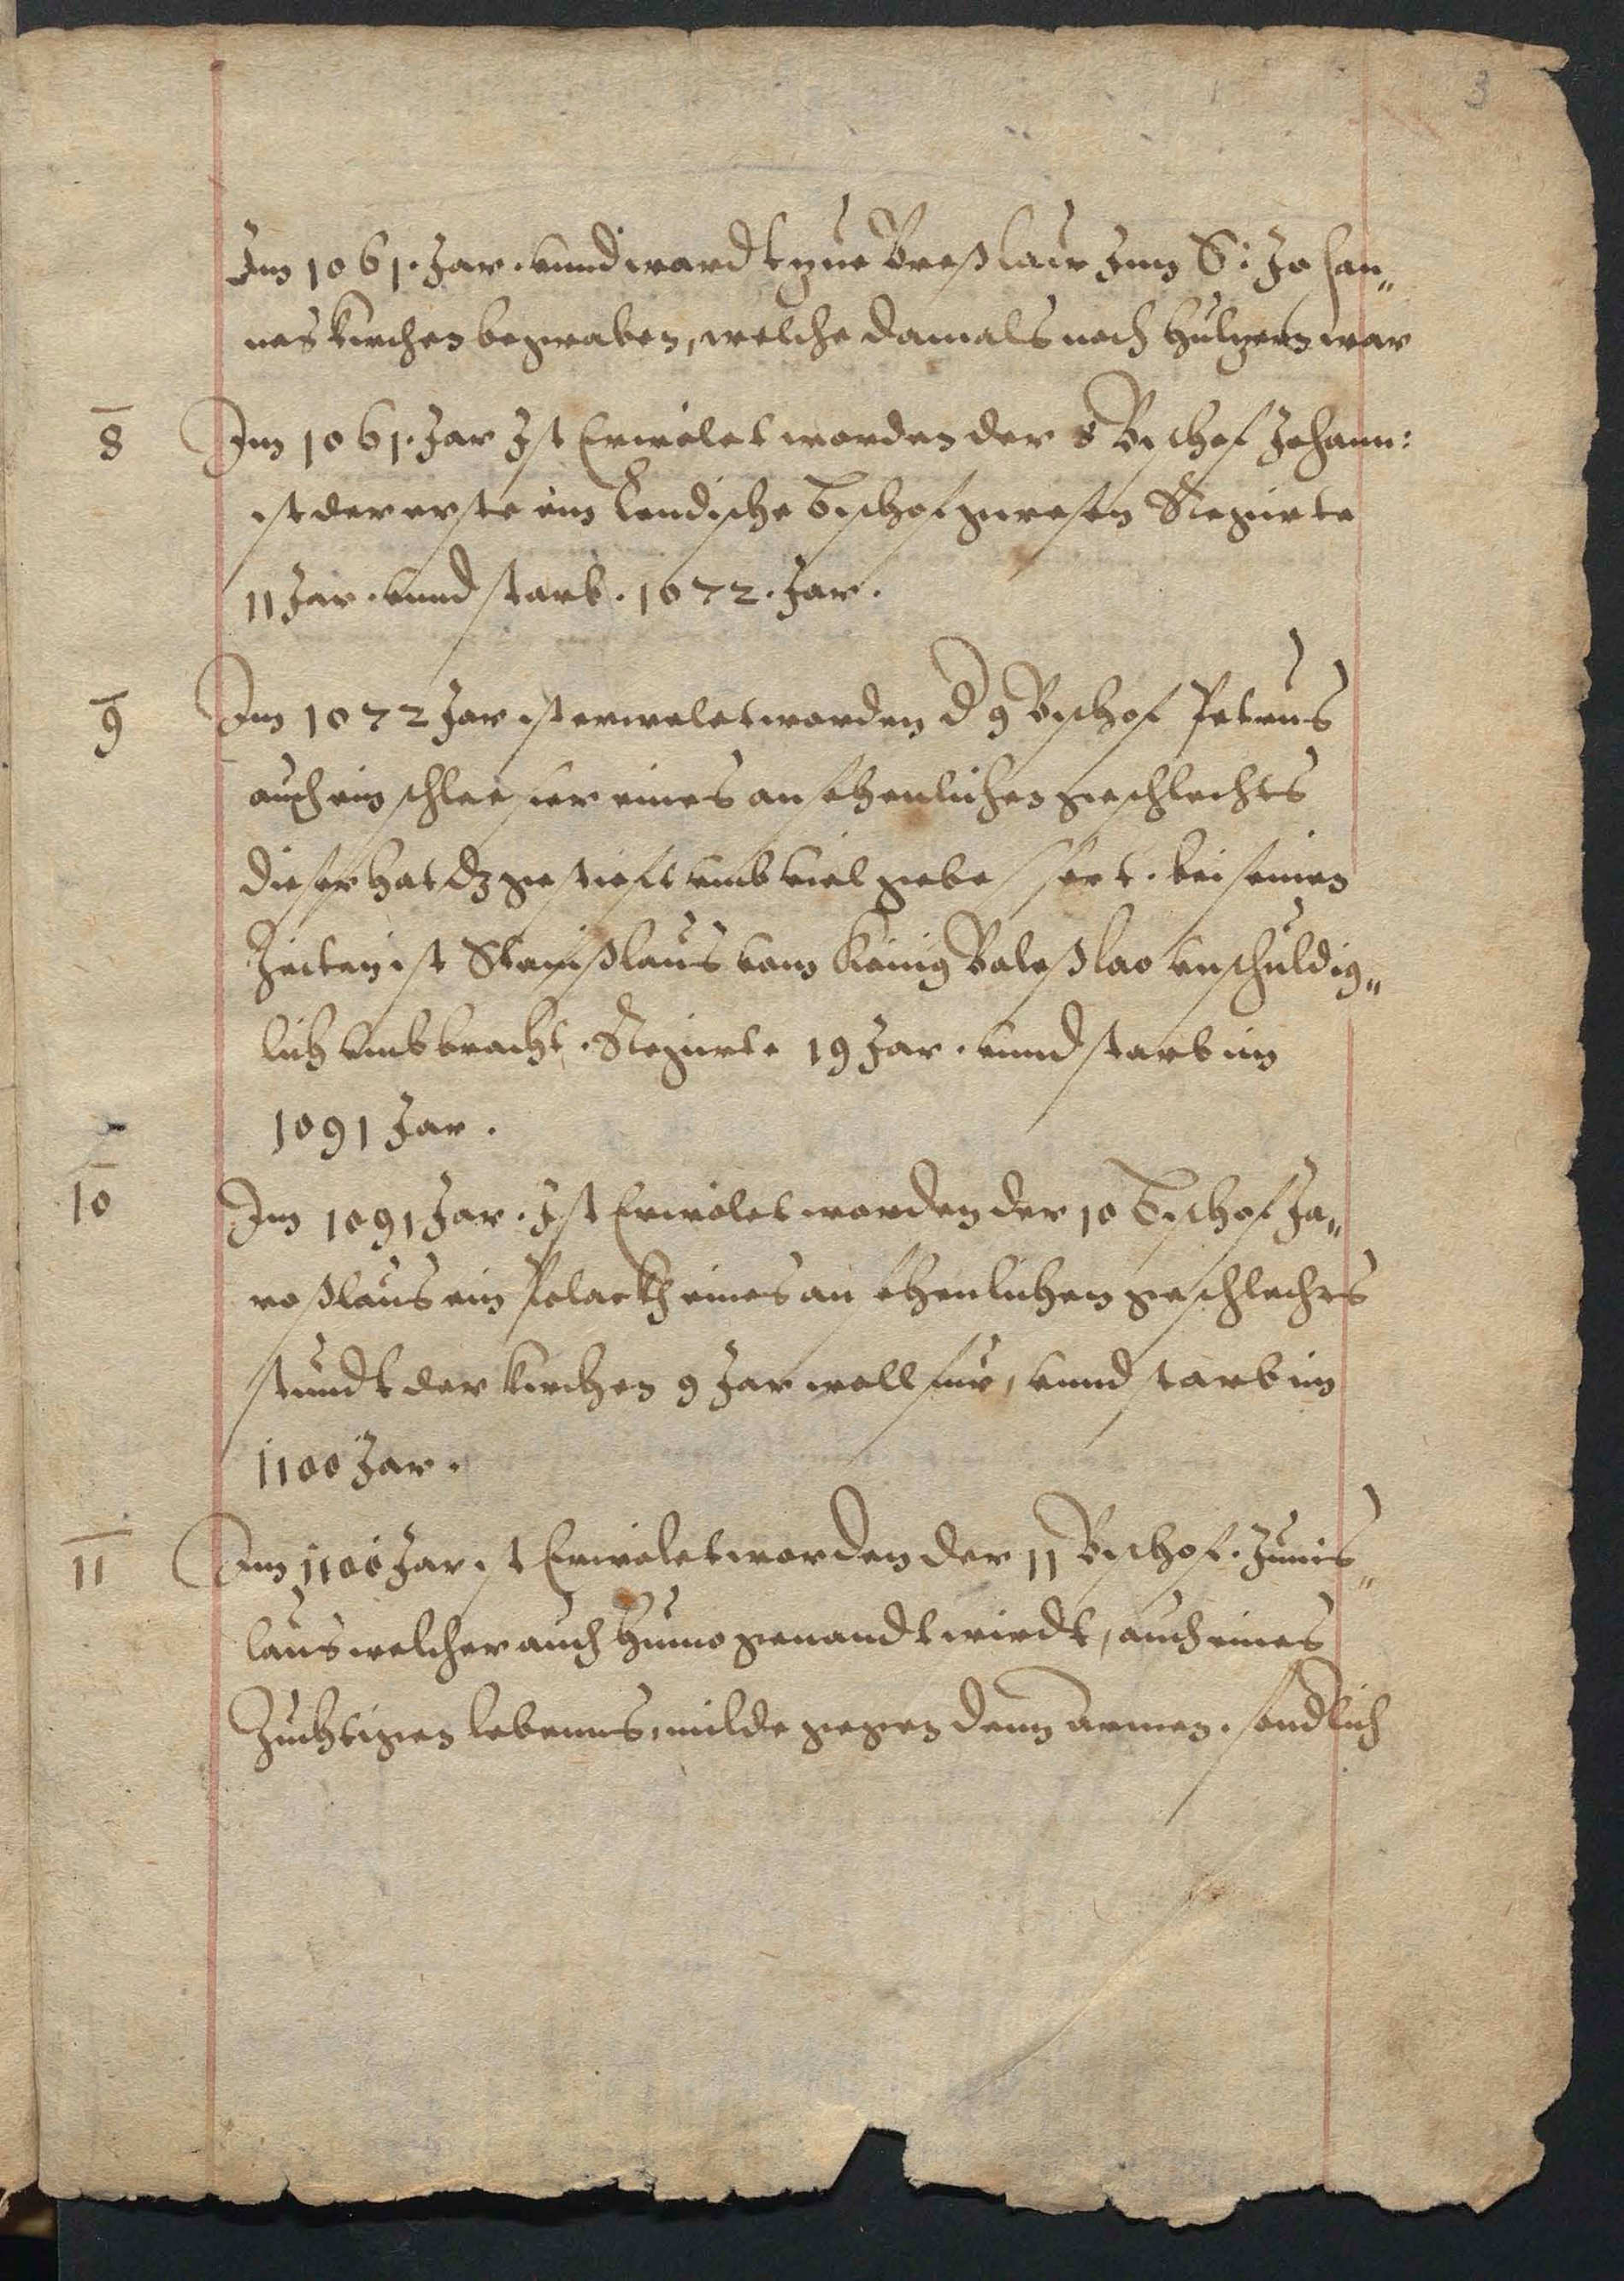 3
Im 1061. Jar. vnnd wardt zue Breßlaw Inn S: Johan„
nes kirchen begraben, welche damals noch hultzern war
8 Im 1061. Jar Ist Erwölet worden der 8 Bischof Johann:
ist der erste ein lendische Bischof gewesen Regirte
11 Jar. vnnd starb. 1072. Jar.
9 Im 1072 Jar ist erwelet worden d 9 Bischof Petrus
auch ein schlesier eines ansehenlichen geschlechts
dieser hat dz gestieft vmb viel gebessert. bei seinen
Zeiten ist Stanißlaus vom König Boleßlao vnschuldig„
lich vmbbracht. Regirte 19 Jar. vnnd starb im
1091 Jar.
10 Im 1091 Jar. Ist Erwölet worden der 10 Bischof Ja„
roßlaus ein Polackh eines ansehenlichen geschlechts
stundt der kirchen 9 Jar woll für, vnnd starb im
1100 Jar.
11 Im 1100 Jar ist Erwölet worden der 11 Bischof. Imis„
laus welcher auch Himo genandt wirdt, auch eines
Züchtigen lebenns, milde gegen denn armen. sondlich